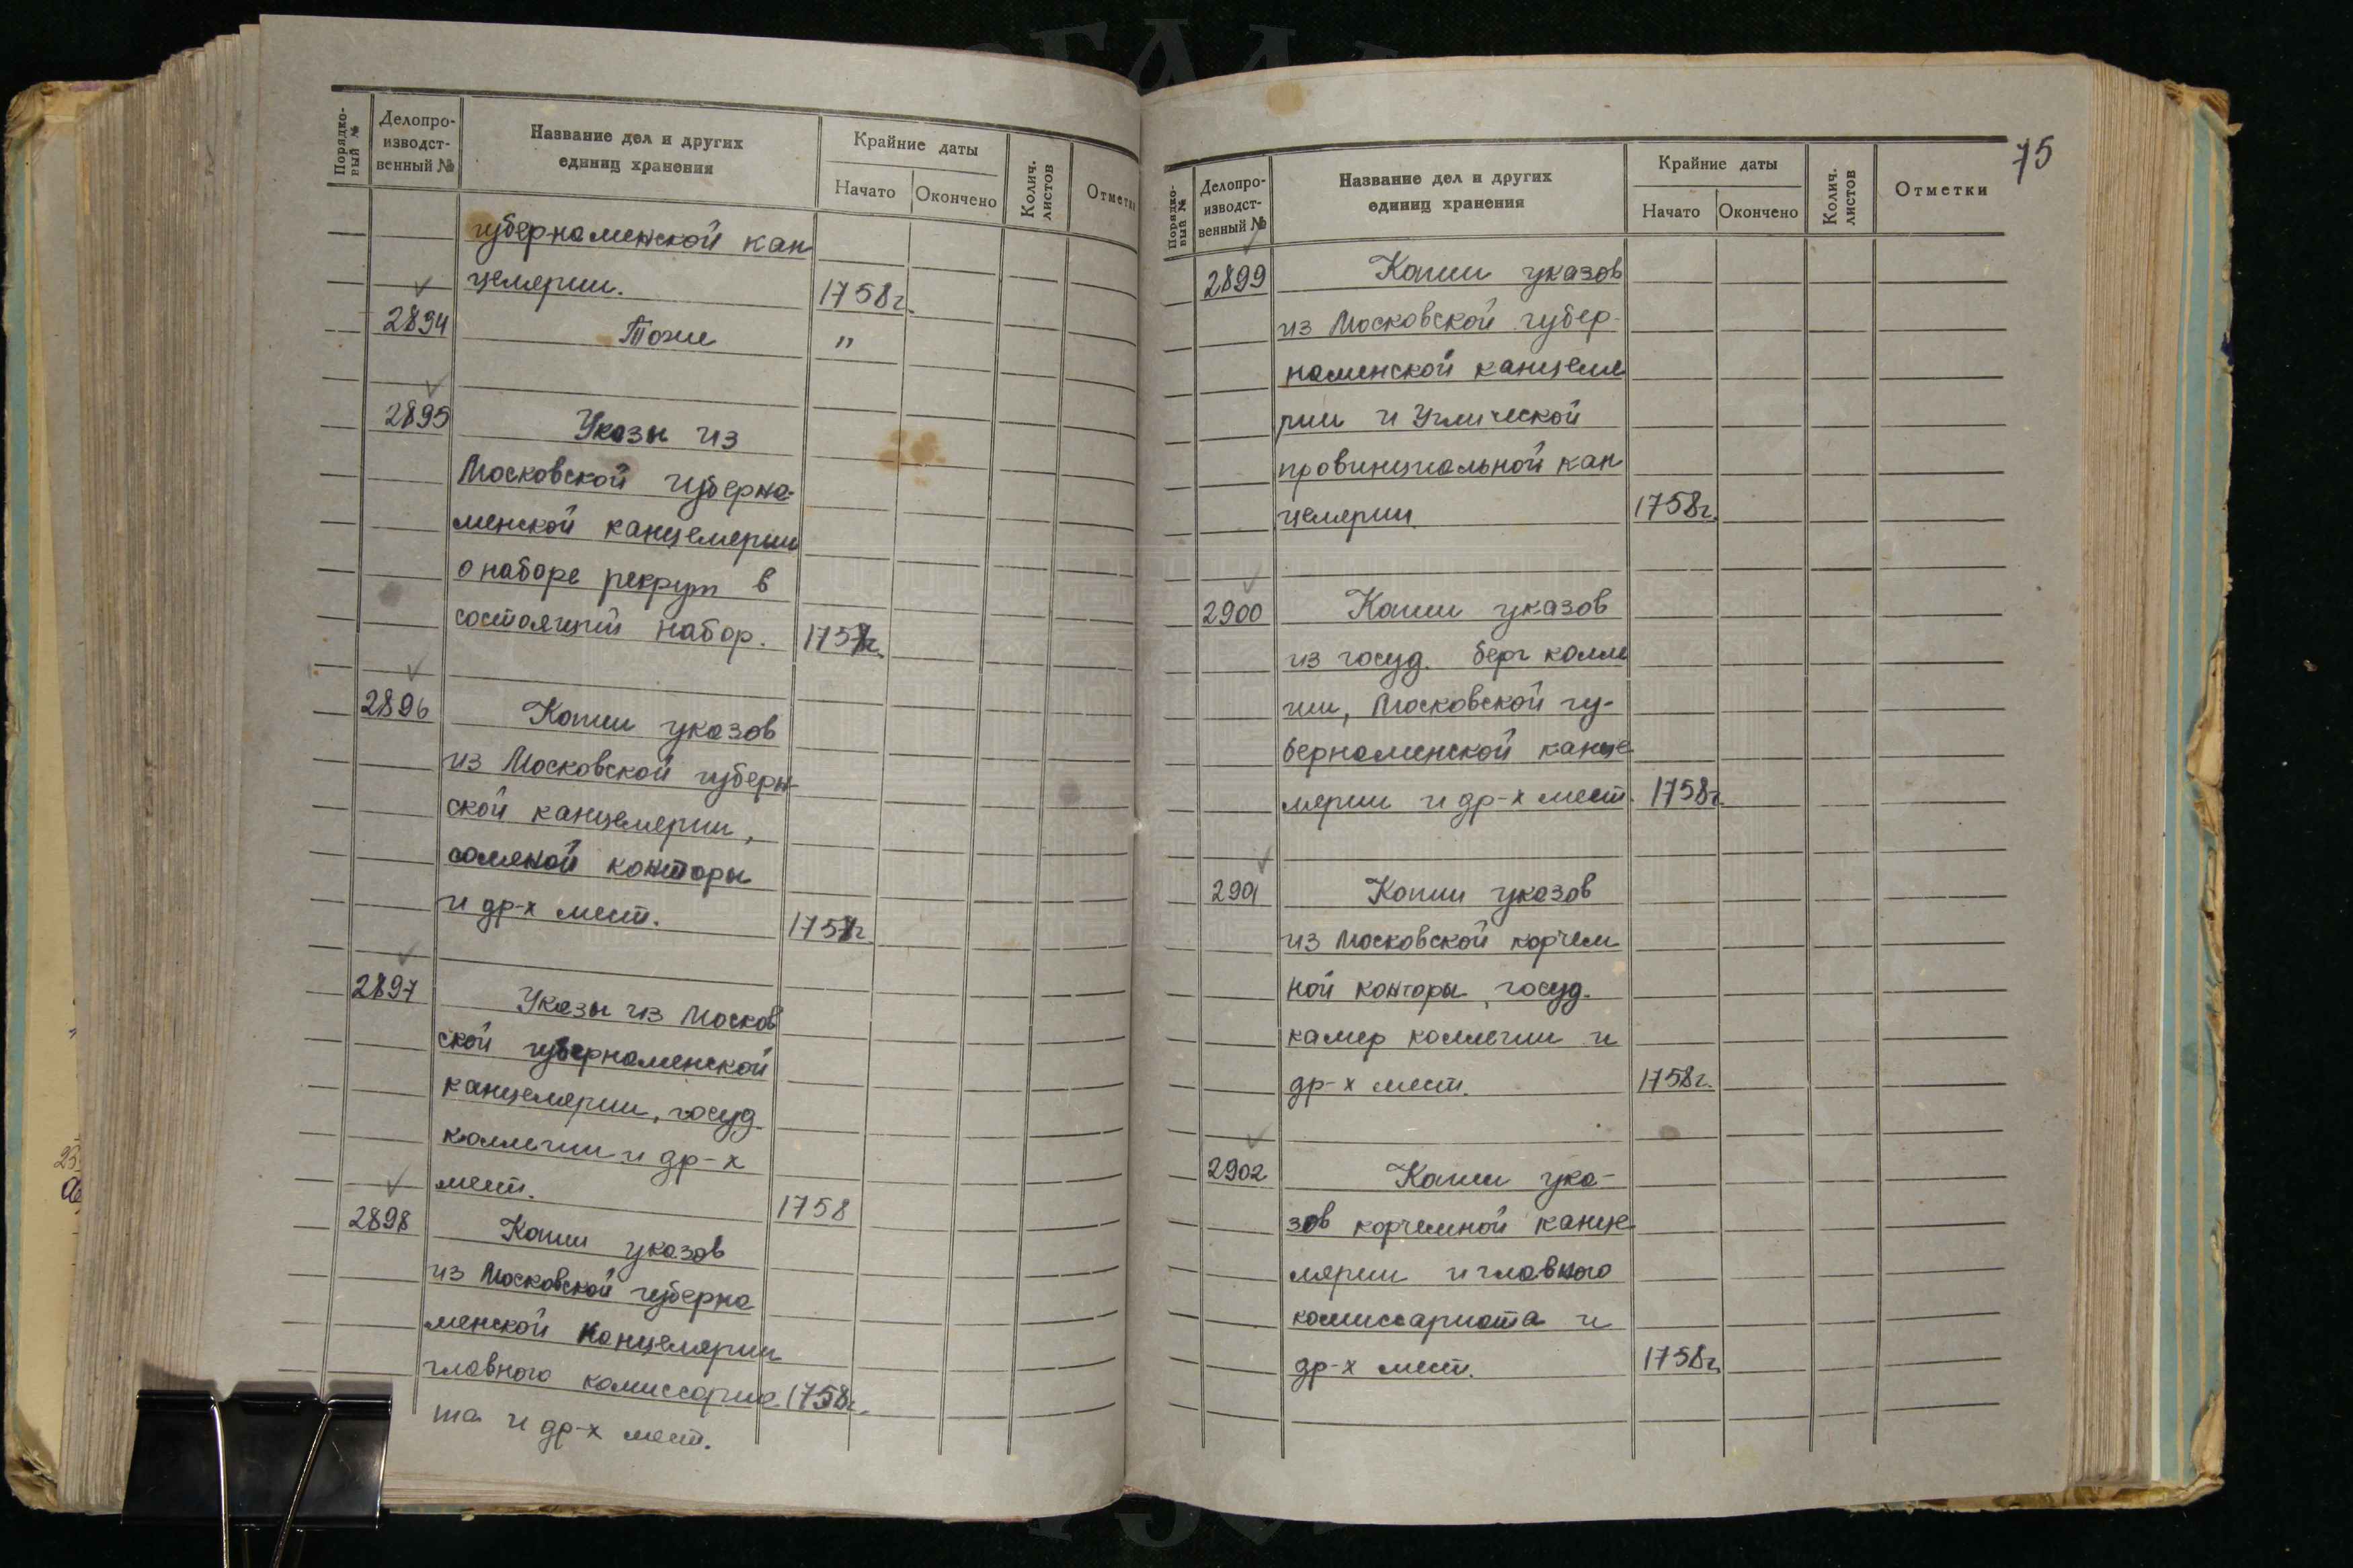 Порядко-
вый №
Делопро-
изводст-
венный №
Название дел и других
единиц хранения
Крайние даты
Начато
Окончено
Колич.
листов
Отметк
губернаменской кан
целярии. 1758г.
2894 Тоже "
2895 Указы из
Московской губерна-
менской канцелярии
о наборе рекрут в
состоящий набор. 1757г.
2896 Копии указов
из Московской губерн-
ской канцелярии,
соляной конторы
и др-х мест. 1757г.
2897 Указы из Москов
ской губернаменской
канцелярии, госуд.
коллегии и др-х
мест. 1758
2898 Копии указов
из Московской губерна
менской Канцелярии
главного комиссариа 1758г.
та и др-х мест.
75
Порядко-
вый №
Делопро-
изводст-
венный №
Название дел и других
единиц хранения
Крайние даты
Начато
Окончено
Колич.
листов
Отметки
2899 Копии указов
из Московской губер-
наменской канцеля
рии и Углической
провинциальной кан
целярии 1758г.
2900 Копии указов
из госуд. берг колле
гии, Московской гу-
бернаменской канце
лярии и др-х мест. 1758г.
2901 Копии указов
из Московской корчем
ной конторы, госуд.
камер коллегии и
др-х мест. 1758г.
2902 Копии ука-
зов корчемной канце
лярии и главного
комиссариата и
др-х мест. 1758г.